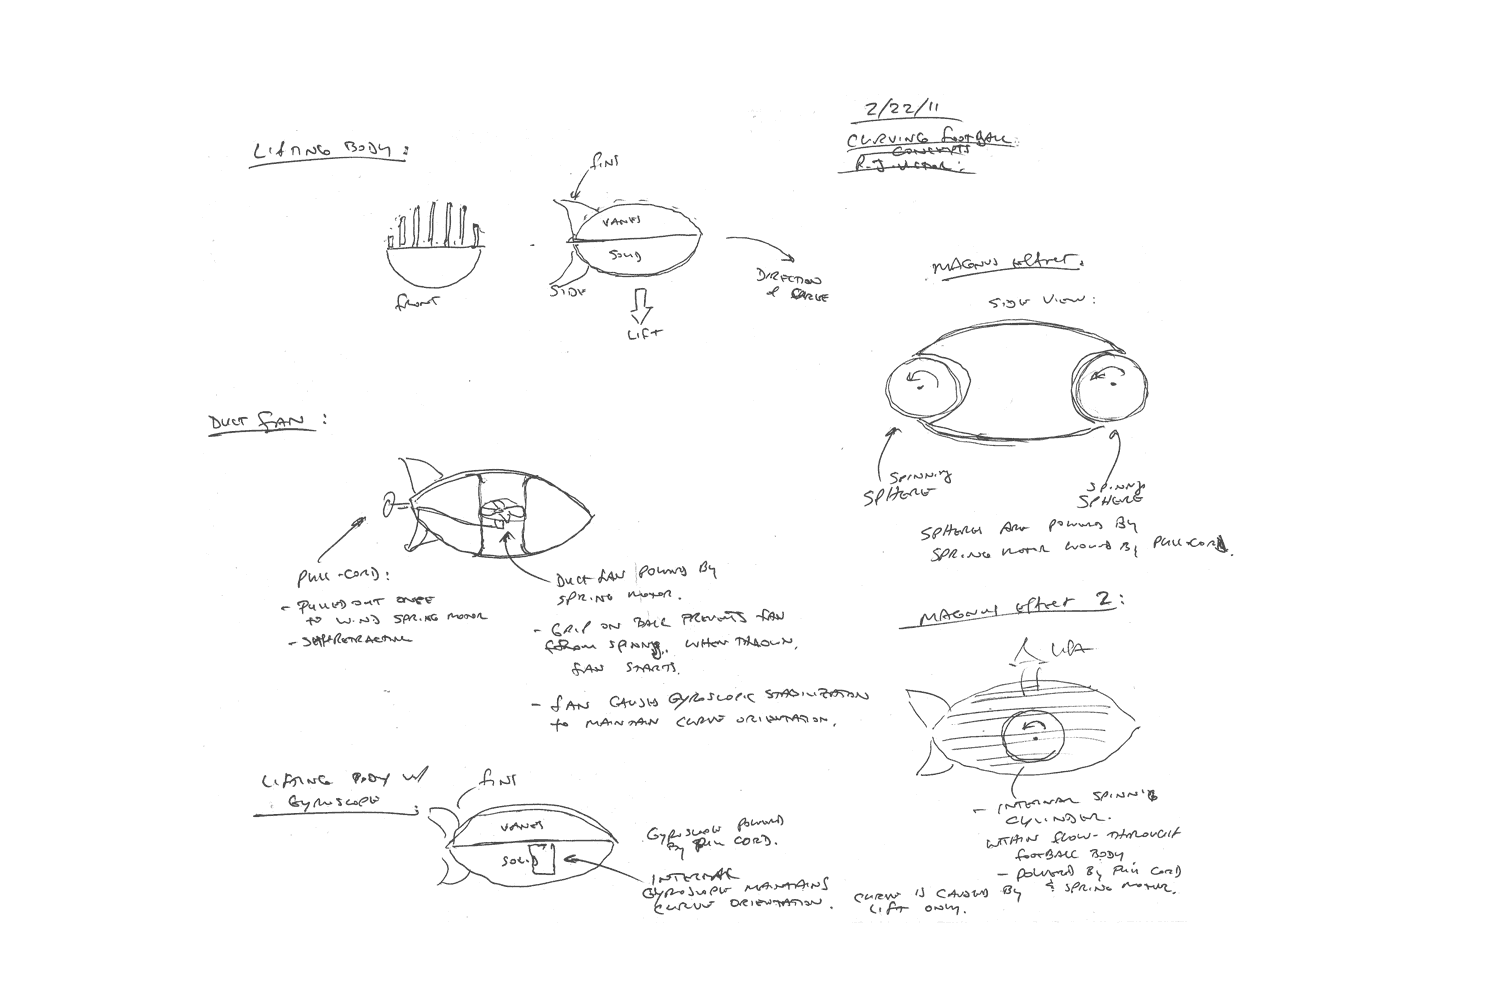 2/22/11
CURVING FOOTBALL
CONCEPTS
LIFTING BODY:
FRONT
FINS
VANES
SOLID
SIDE
LIFT
DIRECTION
of CURVE
MAGNUS EFFECT:
SIDE VIEW:
SPINNING
SPHERE
SPINNING
SPHERE
SPHERES ARE POWERED BY
SPRING MOTOR WOUND BY PULL-CORD.
DUCT FAN:
PULL-CORD:
- PULLED OUT ONCE
TO WIND SPRING MOTOR
- SELF RETRACTING
DUCT FAN POWERED BY
SPRING MOTOR.
- GRIP ON BALL PREVENTS FAN
FROM SPINNING. WHEN THROWN,
FAN STARTS.
- FAN CAUSES GYROSCOPIC STABILIZATION
to MAINTAIN CURVE ORIENTATION.
MAGNUS EFFECT 2:
LIFT
- INTERNAL SPINNING
CYLINDER.
WITHIN FLOW-THROUGH
FOOTBALL BODY
- POWERED BY PULL CORD
& SPRING MOTOR.
LIFTING BODY W/
GYROSCOPE:
FINS
VANES
SOLID
GYROSCOPE POWERED
BY PULL CORD.
INTERNAL
GYROSCOPE MAINTAINS
CURVE ORIENTATION.
CURVE IS CAUSED BY
LIFT ONLY.